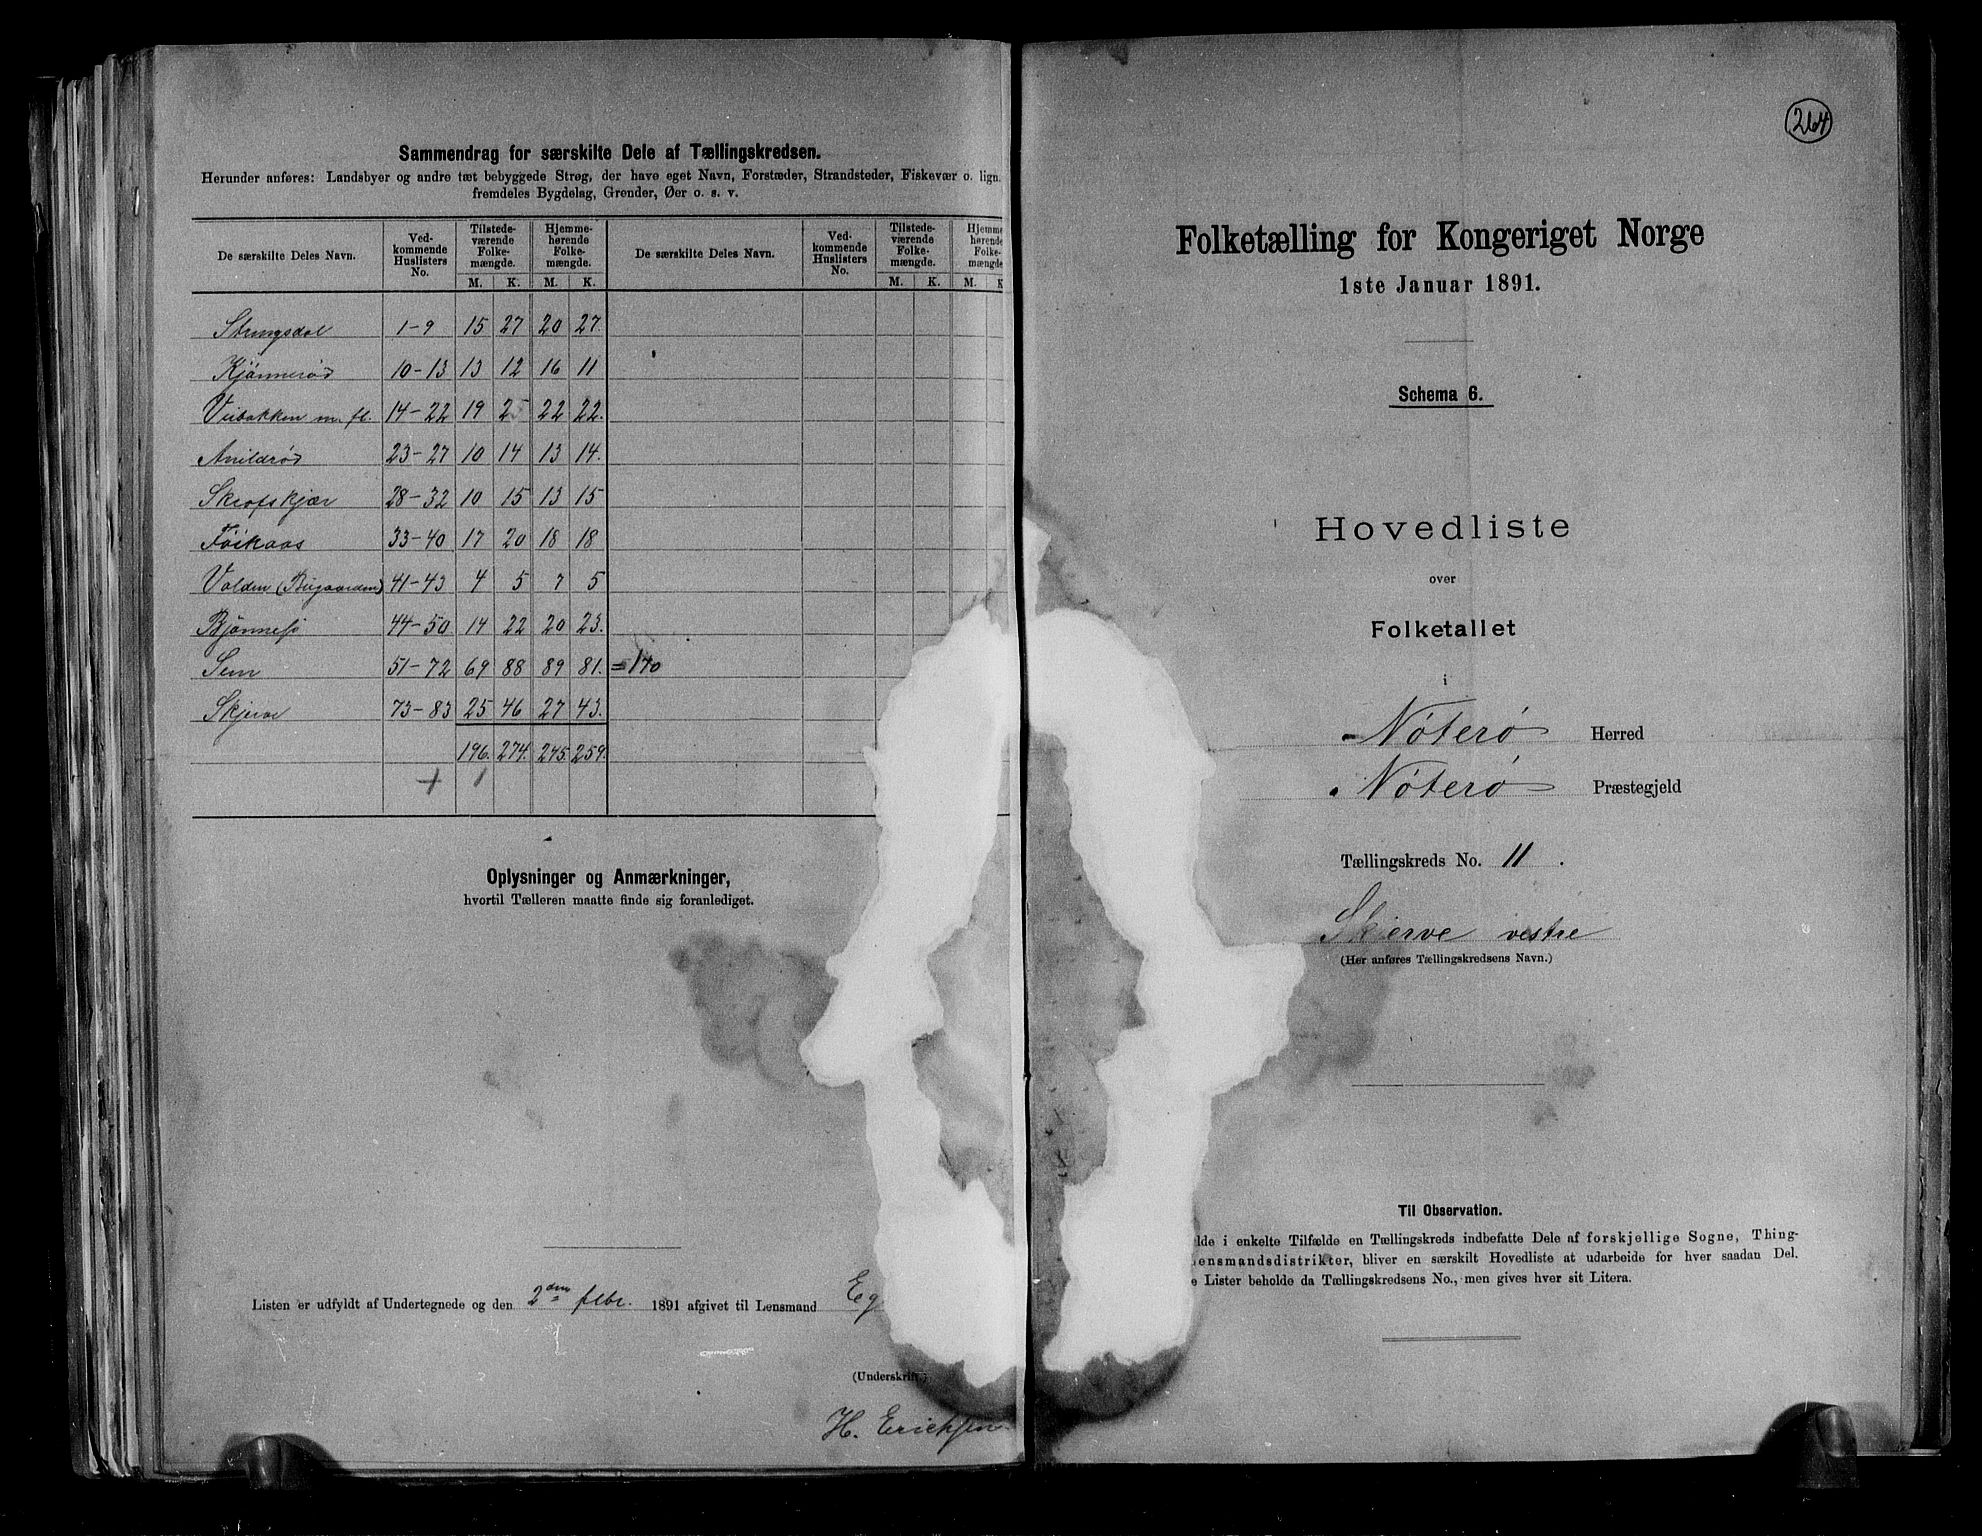 Sammendrag for særskilte Dele af Tællingskredsen.
Herunder anføres: Landsbyer og andre tæt bebyggede Strøg, der have eget Navn, Forstæder, Strandsteder, Fiskevær o. lign.
fremdeles Bygdelag, Grender, Øer o. s. v.
De særskilte Deles Navn. Ved-kommende Huslisters No. Tilstede-værende Folke-mængde. Hjemme-hørende Folke-mængde. De særskilte Deles Navn. Ved-kommende Huslisters No. Tilstede-værende Folke-mængde. Hjemme-hørende Folke-mængde
M. K. M. K. M. K. M. K
Strengsdal 1-9 15 27 20 27.
Kjønnerød 10-13 13 12 16 11
Veibakken m. fl. 14-22 19 25 22 22.
Arildrød 23-27 10 14 13 14.
Skrofskjær 28-32 10 15 13 15
Föikaas 33-40 17 20 18 18
Volden (Bugaarden) 41-43 4 5 7 5
Bjønnesø 44-50. 14 22 20 23.
Sem 51-72 69 88 89 81. =170
Skjerve 73-83 25 46 27 43.
196. 274. 245. 259.
Oplysninger og Anmærkninger,
hvortil Tælleren maatte finde sig foranlediget.
Listen er udfyldt af Undertegnede og den 2den febr. 1891 afgivet til Lensmand Eg
(Underskrift.)
H. Erichsen
264
Folketælling for Kongeriget Norge
1ste Januar 1891.
Schema 6.
Hovedliste
over
Folketallet
i
Nøterø Herred
Nøterø Præstegjeld
Tællingskreds No. 11.
Skjerve vestre
(Her anføres Tællingskredsens Navn.)
Til Observation.
lde i enkelte Tilfælde en Tællingskreds indbefatte Dele af forskjellige Sogne, Thing-
ensmandsdistrikter, bliver en særskilt Hovedliste at udarbeide for hver saadan Del.
e Lister beholde da Tællingskredsens No., men gives hver sit Litera.